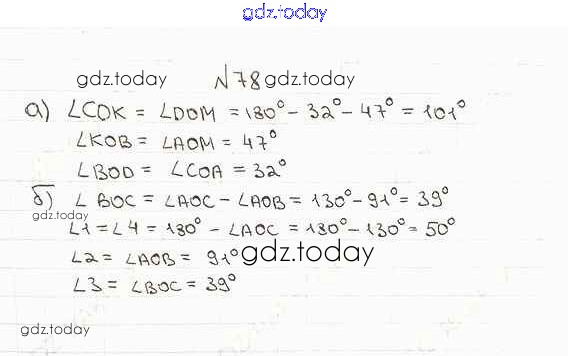 gdz.today
gdz.today №78 gdz.today
а) ∠COK = ∠DOM = 180° - 32° - 47° = 101°
∠KOB = ∠AOM = 47°
∠BOD = ∠COA = 32°
б) ∠BOC = ∠AOC - ∠AOB = 130° - 91° = 39°
gdz.today
∠1 = ∠4 = 180° - ∠AOC = 180° - 130° = 50°
∠2 = ∠AOB = 91° gdz.today
∠3 = ∠BOC = 39°
gdz.today